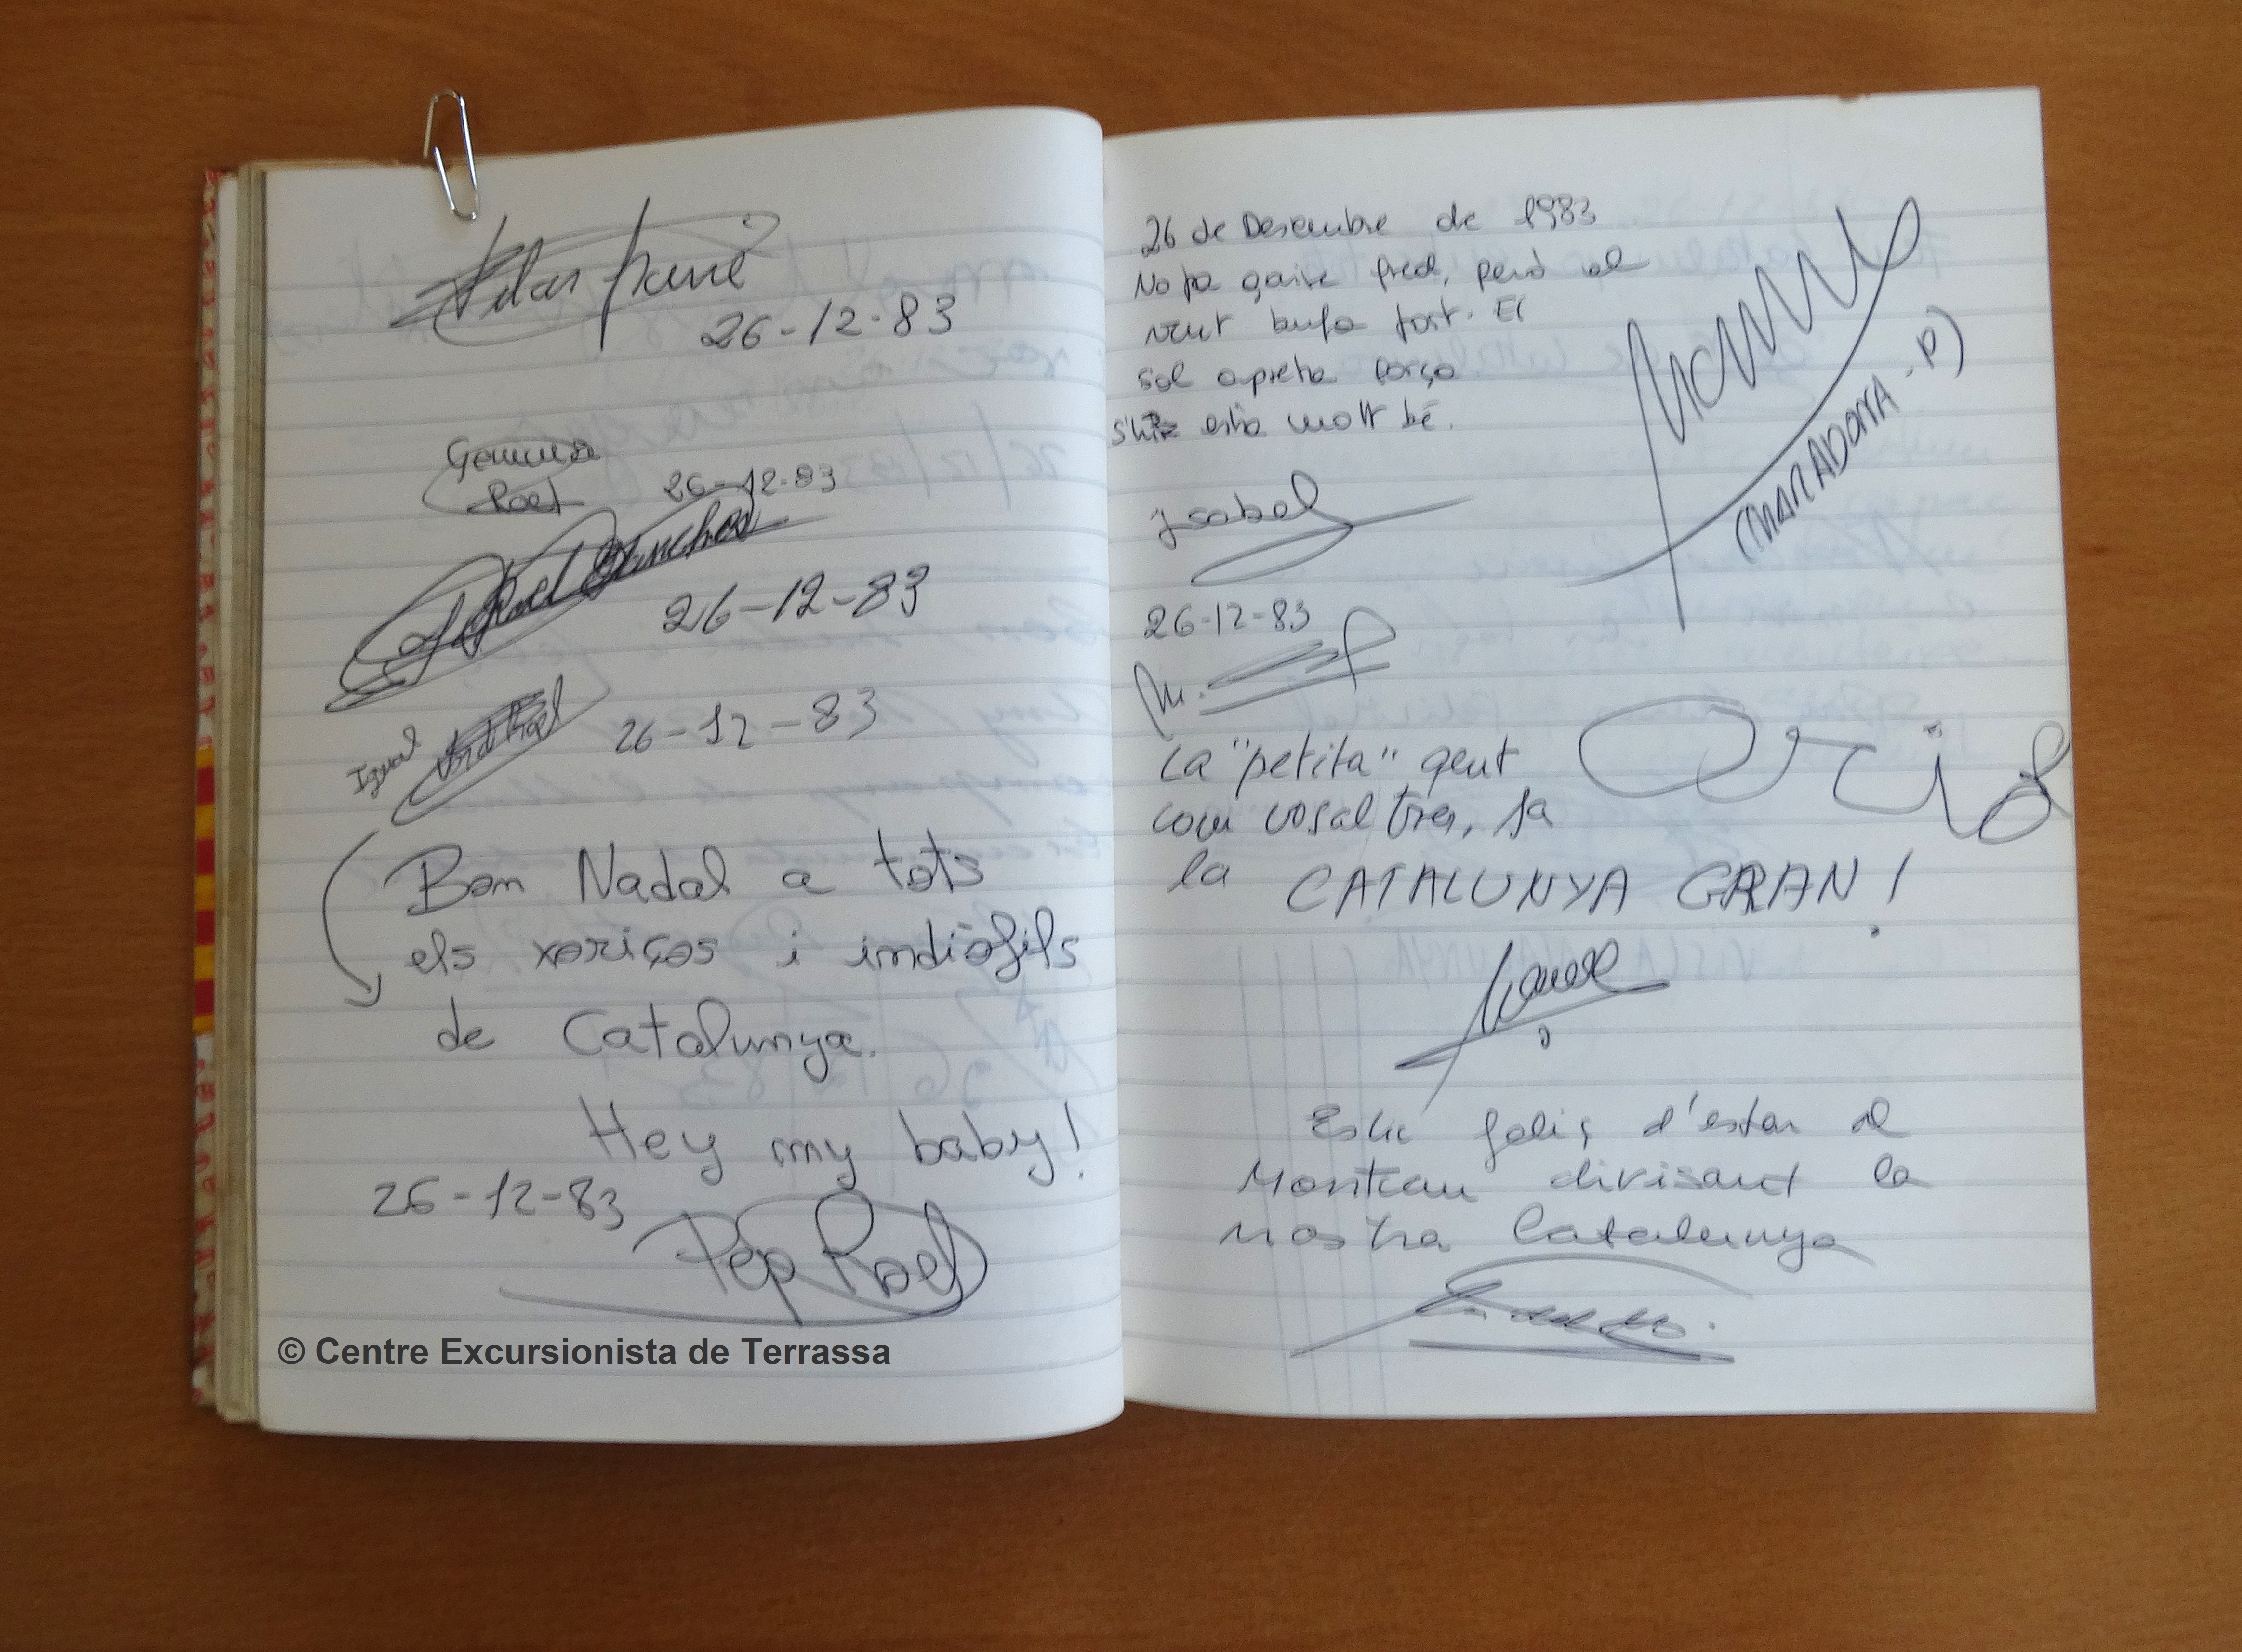 26-12-83
Gemma
Roel
26-12-83
Roel Sanchez
26-12-83
Igual
26-12-83
Bon Nadal a tots
els xoriços i indiòfils
de Catalunya.
Hey my baby!
26-12-83
Pep Roel
© Centre Excursionista de Terrassa
26 de Desembre de 1983
No fa gaire fred, però el
vent bufa fort. El
sol apreta força
està molt bé.
(MARADONA.P)
Isabel
26-12-83
M.
Oriol
La "petita" gent
com vosaltres, fa
la CATALUNYA GRAN!
Estic feliç d'estar al
Montcau divisant la
nostra Catalunya